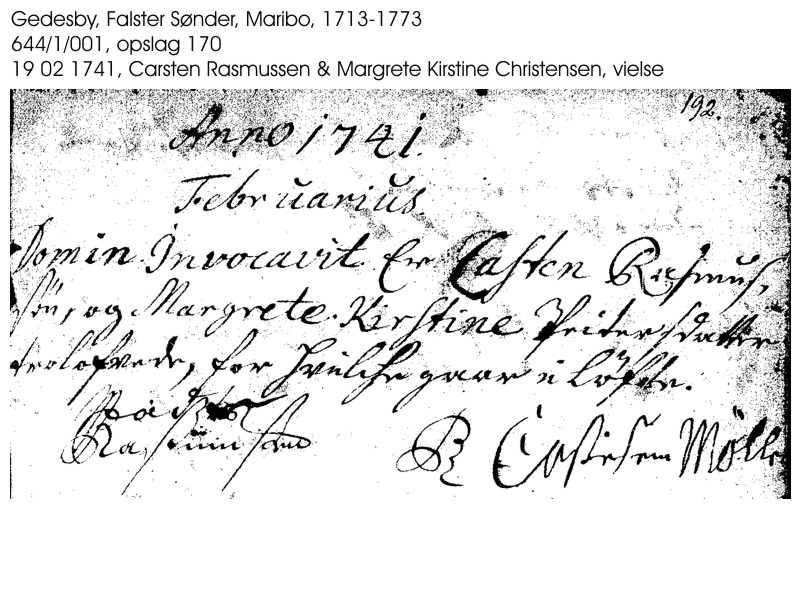 Gedesby, Falster Sønder, Maribo, 1713-1773
644/1/001, opslag 170
19 02 1741, Carsten Rasmussen & Margrete Kirstine Christensen, vielse
192.
Anno 1741.
Februarius
Domin. Invocavit Er Casten Rasmus,
Sön, og Margrete Kirstine Peitersdatter
trolofvede, for hvilche gaar i löfte.
Rasmussen
Möller